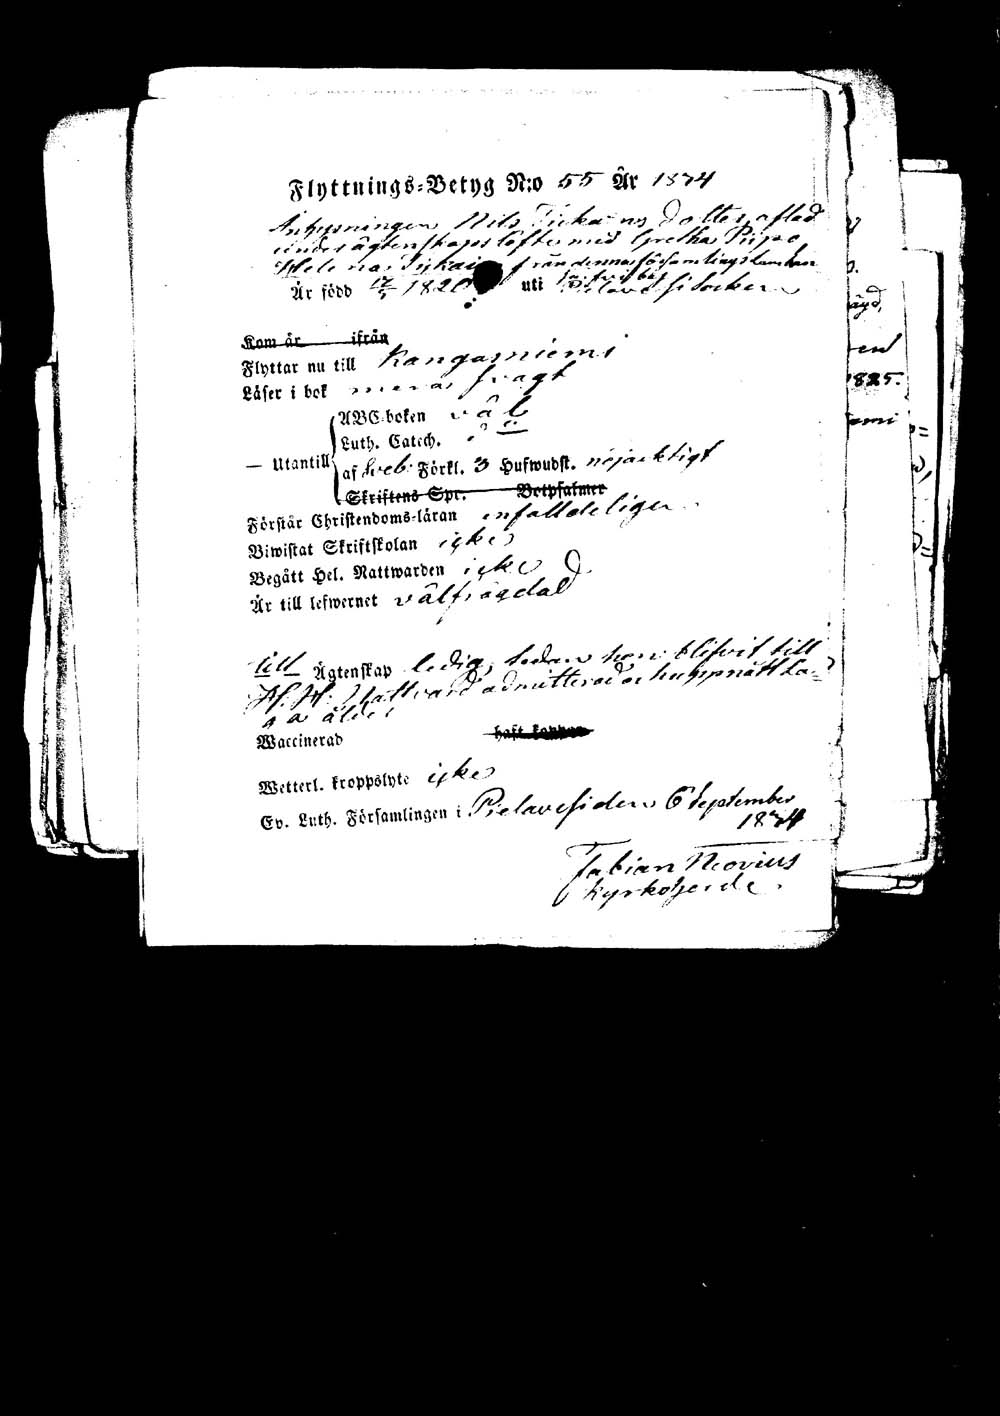 Flyttnings-Betyg N:o 55 År 1874
Inhysningen Nils Tickains dotter, aflad
under ägtenskapslöfte med Gretha Piipo
Helena Tickain från denna församlings
År född 17/5 182 uti Pielavesi socken
Kom år ifrån
Flyttar nu till Kangasniemi
Läser i bok svagt
ABC-boken väl
Luth. Catech. d:o
— Utantill
af Sveb. Förkl. 3 Hufwudst. nöjacktigt
Skriftens Spr. Botpsalmer
Förstår Christendoms-läran enfalldeligen
Biwistat Skriftskolan icke
Begått Hel. Nattwarden icke
Är till lefwernet välfrägdad
till Ägtenskap ledig, sedan hon blifvit till
H. H. Nattvard admitterad och uppnått la-
ga ålder
Waccinerad haft koppor
Wetterl. kroppslyte icke
Ev. Luth. Församlingen i Pielavesi den 6 September
1874
Fabian Neovius
Kyrkoherde.
äyd,
1825.